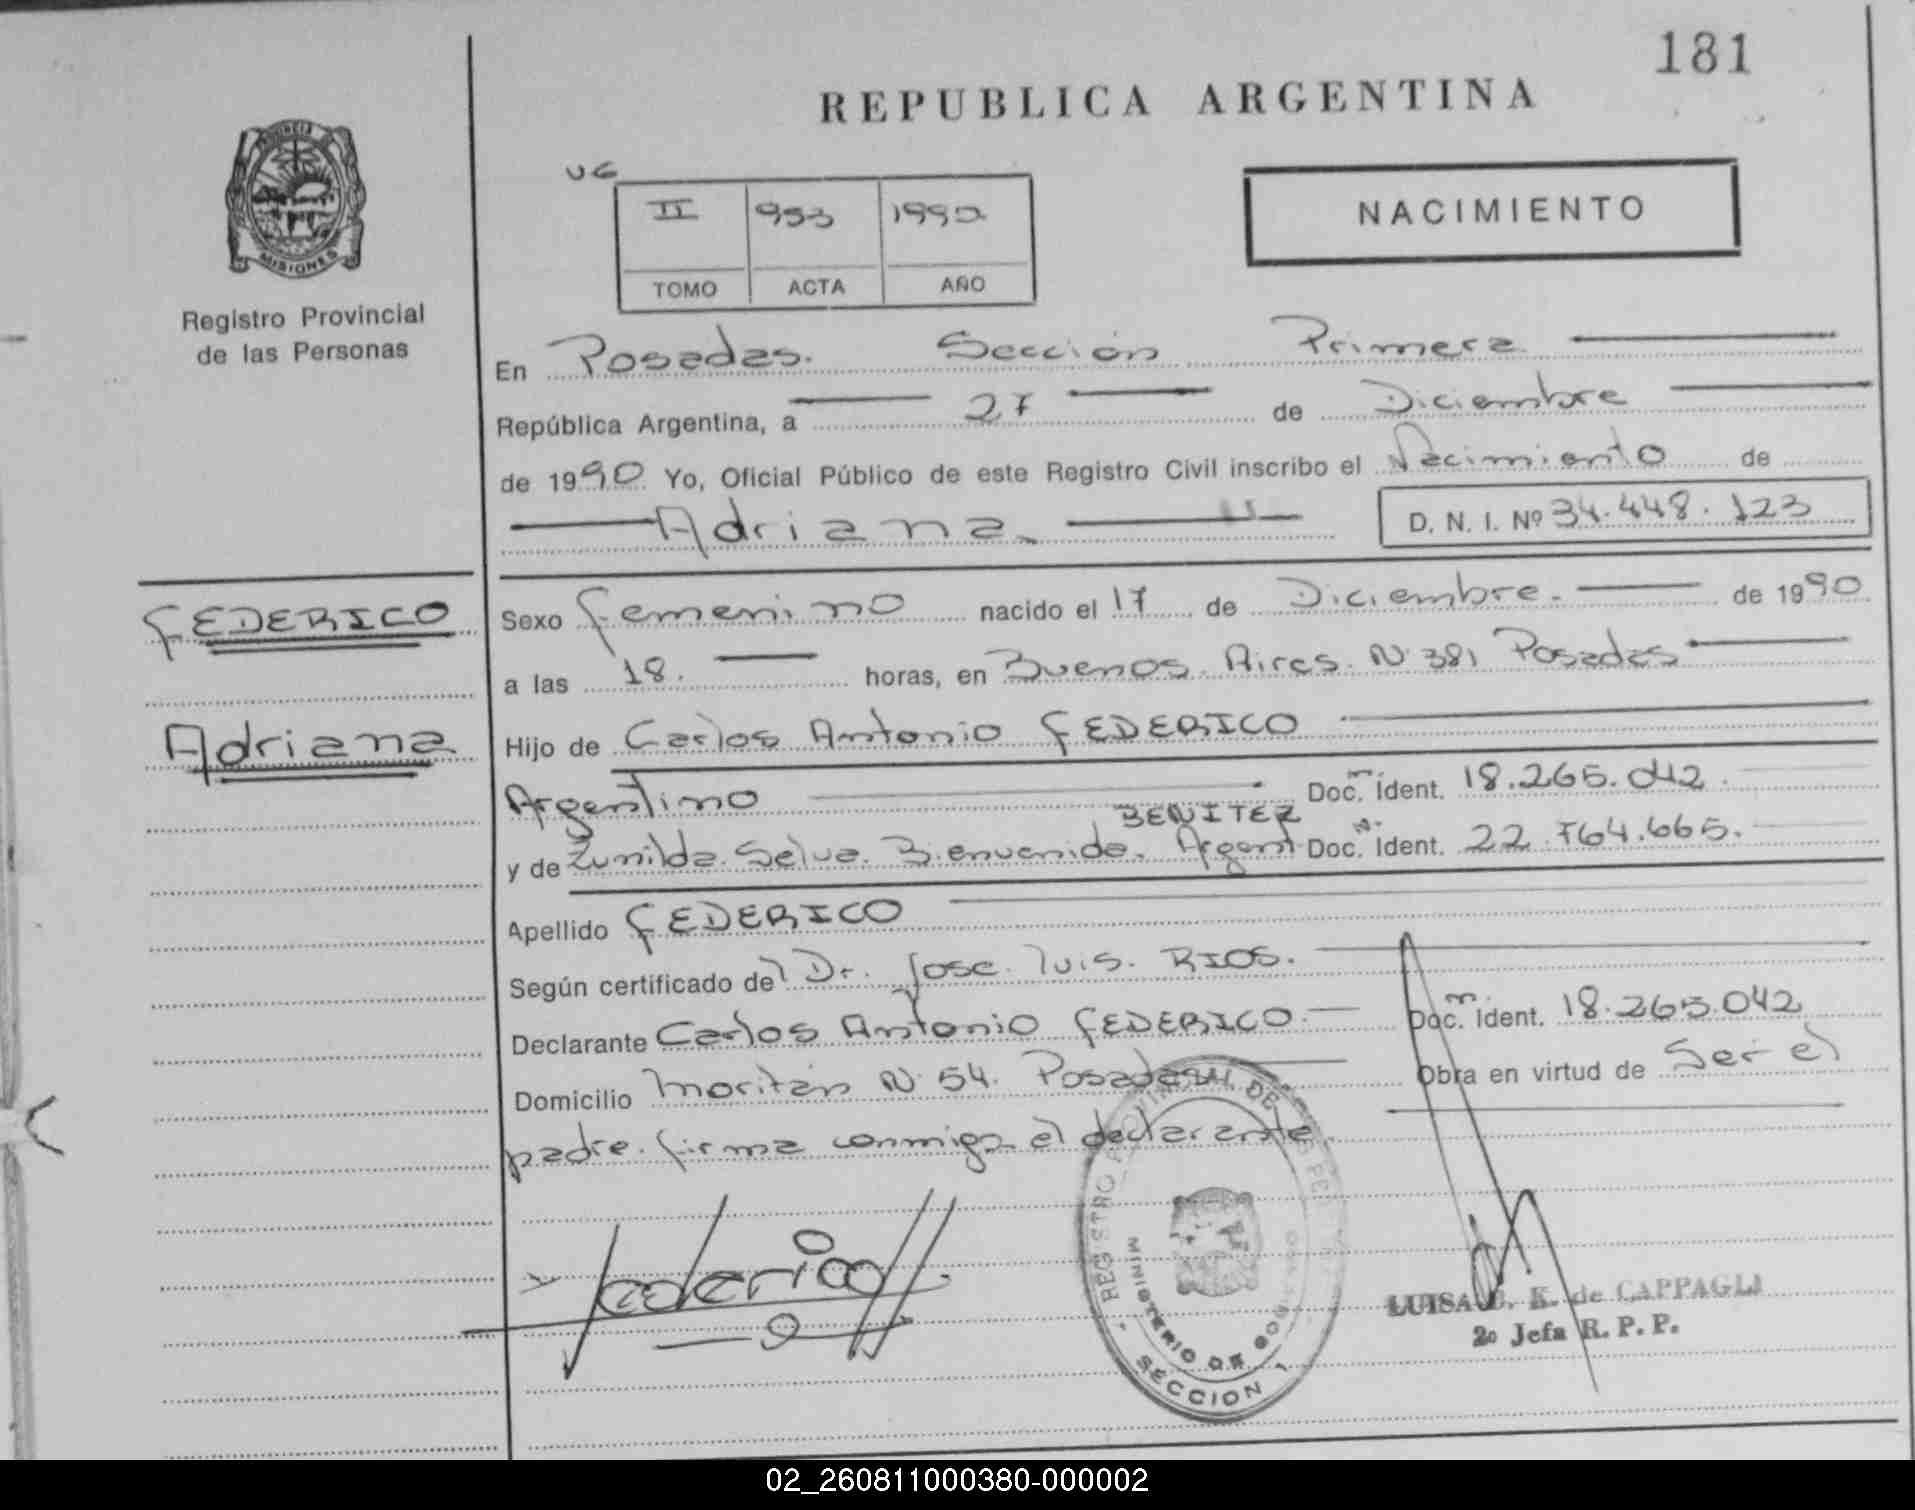 181
REPUBLICA ARGENTINA
UG
II 953 1990
TOMO ACTA AÑO
NACIMIENTO
MISIONES
Registro Provincial
de las Personas
En Posadas. Sección Primera
República Argentina, a 27 de Diciembre
de 1990 Yo, Oficial Público de este Registro Civil inscribo el Nacimiento de
Adriana
D. N. I. Nº 34.448.123
FEDERICO
Adriana
Sexo femenino nacido el 17 de Diciembre. de 1990
a las 18. horas, en Buenos Aires. N 381 Posadas
Hijo de Carlos Antonio FEDERICO
Argentino Doc. Ident. 18.265.042.
BENITEZ
y de Zunilda Selva Bienvenida. Argent Doc. Ident. 22.764.665.
Apellido FEDERICO
Según certificado del Dr. Jose Luis. RIOS.
Declarante Carlos Antonio FEDERICO. Doc. Ident. 18.265.042
Domicilio Moritán N 54. Posadas Obra en virtud de Ser el
padre. firma conmigo el declarante.
Federico
REGISTRO DE
MINISTERIO DE GOB
SECCION 1
LUISA K. de CAPPAGLI
2º Jefa R. P. P.
02_260811000380-000002